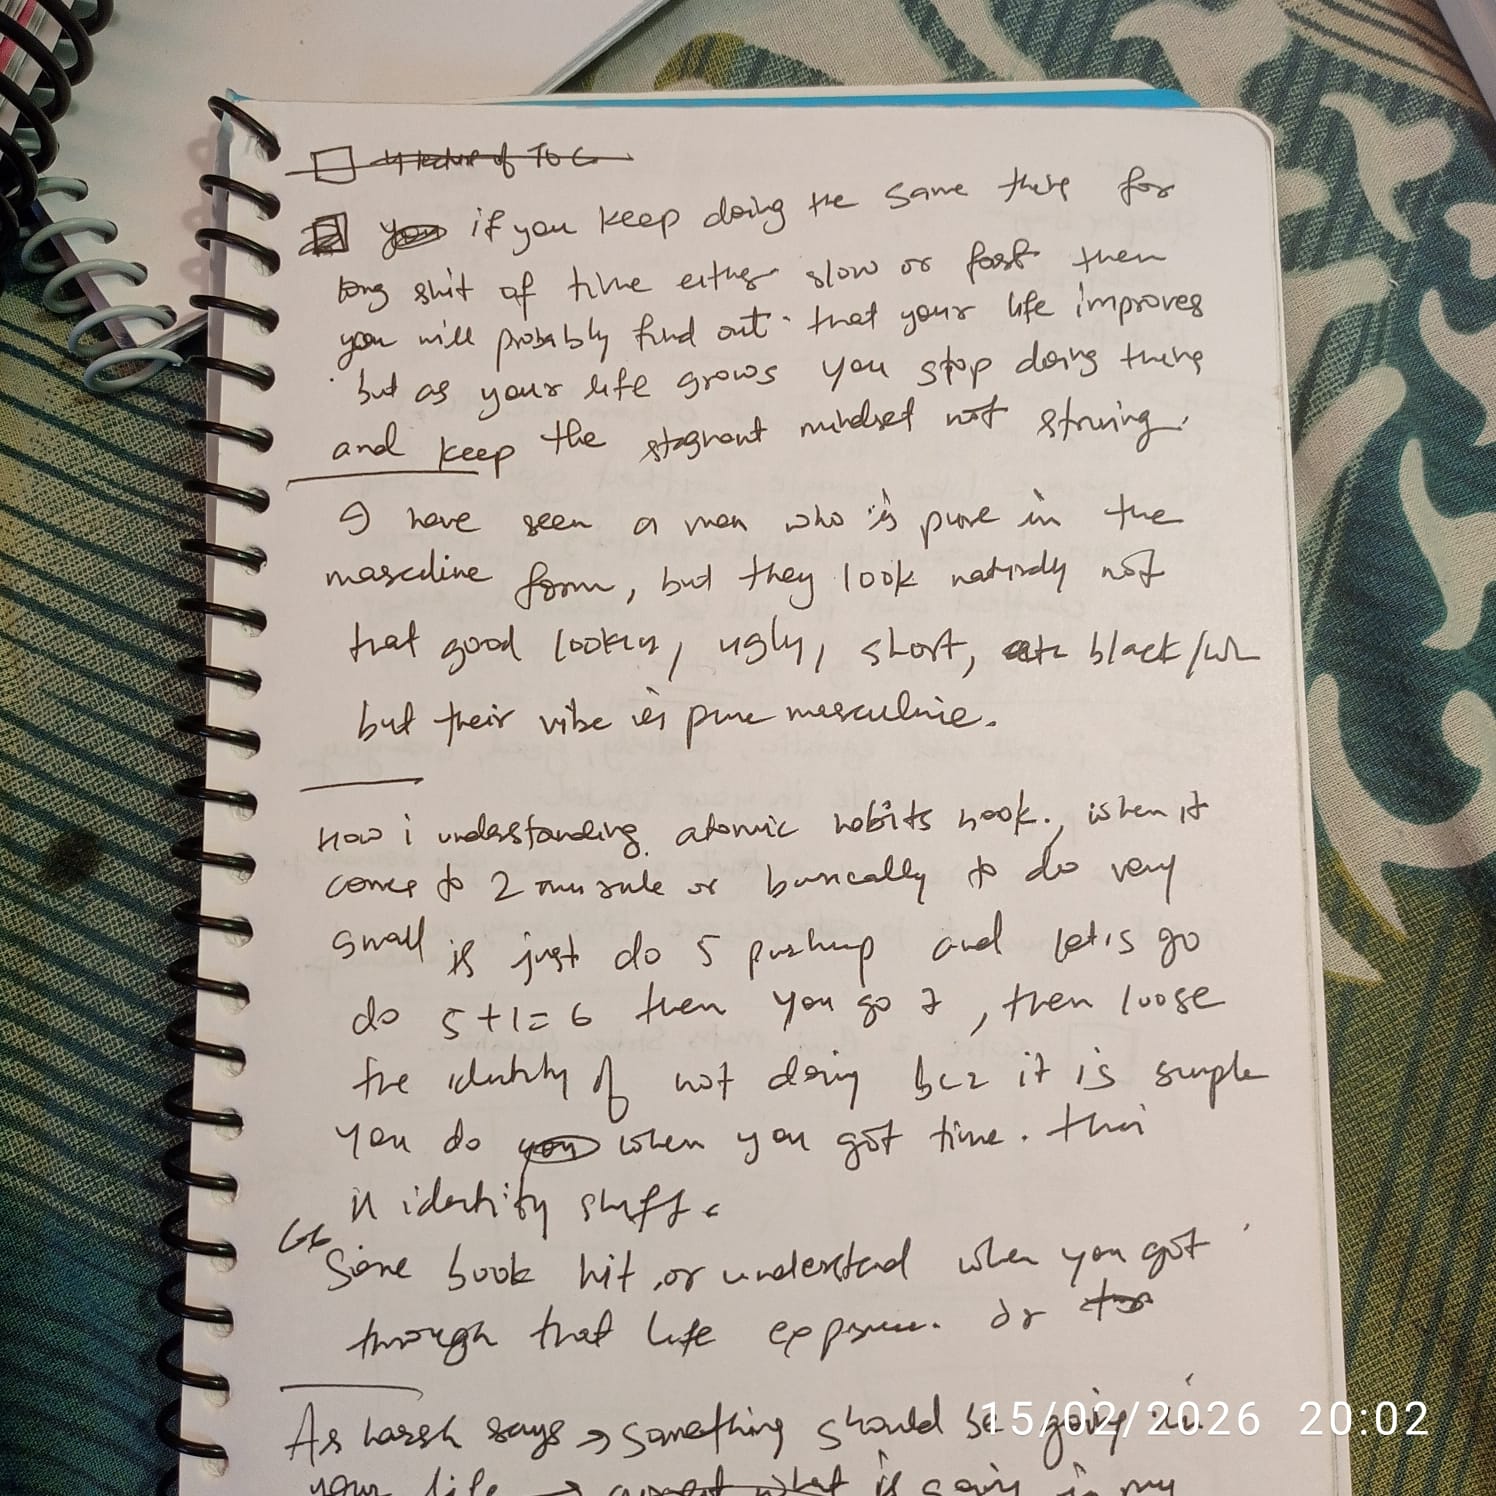 4 lecture of TOC
you if you keep doing the same thing for
long shit of time either slow or fast then
you will probably find out that your life improves
but as your life grows you stop doing thing
and keep the stagnant mindset not striving.
I have seen a man who is pure in the
masculine form, but they look naturaly not
that good lookin, ugly, short, black/wh
but their vibe is pure masculine.
How i understanding atomic habits book., when it
comes to 2 min rule or basically to do very
small is just do 5 pushup and let's go
do 5+1=6 then you go 7, then loose
the identity of not doing bcz it is simple
you do you when you got time. this
is identity shift.
Some book hit or understand when you got
through that life or
As harsh says → something should be going in
your life → what is going in my
15/02/2026 20:02